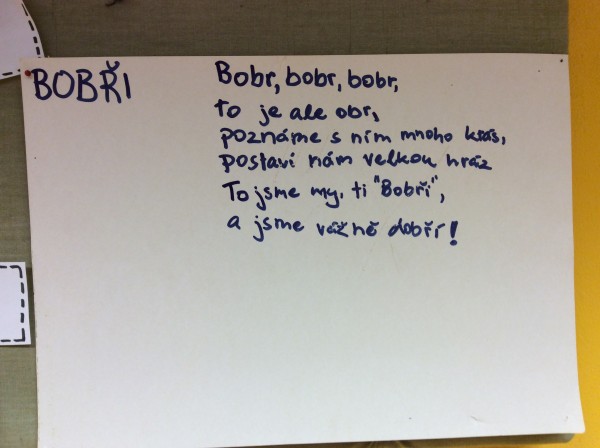 BOBŘI
Bobr, bobr, bobr,
to je ale obr,
poznáme s ním mnoho krás,
postaví nám velkou hráz
To jsme my, ti "Bobři",
a jsme vážně dobří!